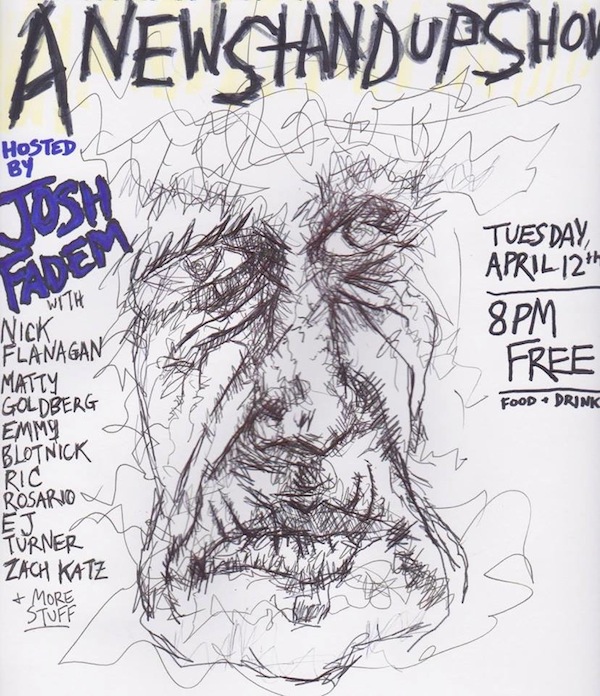 A NEW STAND UP SHOW
HOSTED
BY
JOSH
FADEM
WITH
NICK
FLANAGAN
MATTY
GOLDBERG
EMMY
BLOTNICK
RIC
ROSARIO
EJ
TURNER
ZACH KATZ
+ MORE
STUFF
TUESDAY,
APRIL 12TH
8PM
FREE
FOOD + DRINK